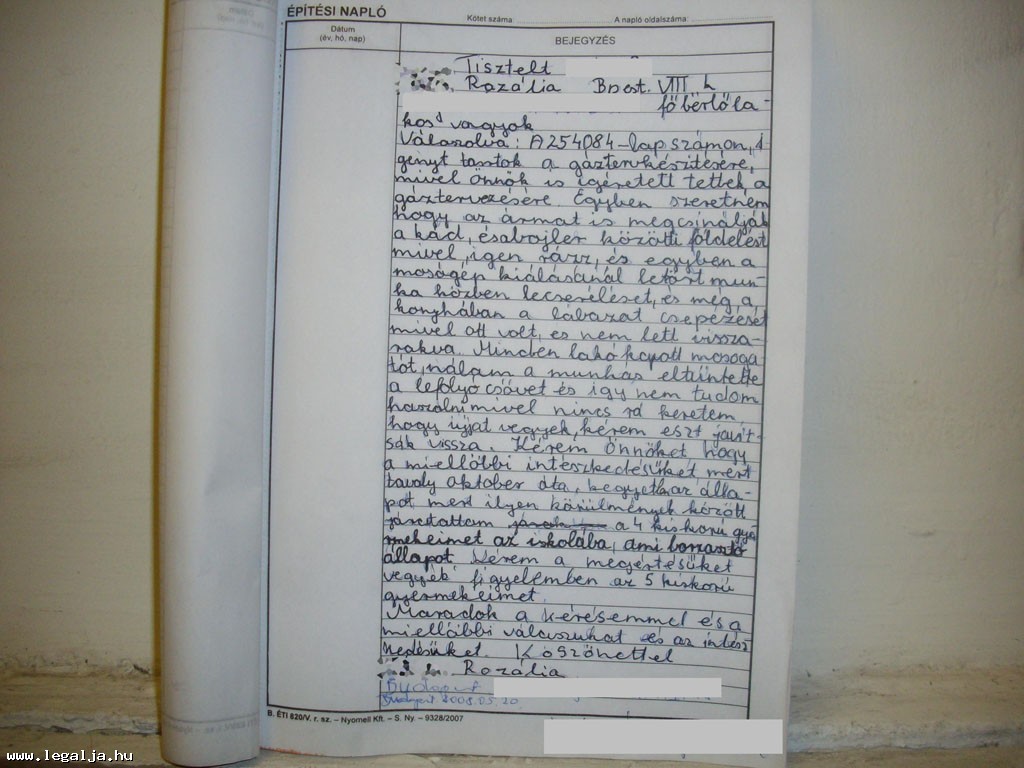 ÉPÍTÉSI NAPLÓ
Kötet száma: A napló oldalszáma:
Dátum
(év, hó, nap)
BEJEGYZÉS
Tisztelt
Rozália Bpest. VIII k
főbérlőla-
kos vagyok
Válaszolva: A254084-lap számon, i
gényt tartok a gáztervkészítésére,
mivel Önnök is igéretett tettek a
gáztervezésére Egyben szeretném
hogy az ármat is megcsinálják
a kád, ésabojler közötti földelést
mivel, igen rázz, és egyben a
moságép kiálásánál letört mun-
ka közben lecserélését, és még a
konyhában a lábazat csepézését
mivel ott volt, es nem lett vissza-
rakva. Minden lakó kapott mosoga
tót, nálam a munkás eltüntette
a lefolyó csövet és igy nem tudom
használni mivel nincs rá keretem,
hogy újjat vegyek, kérem eszt javít-
sák vissza. Kérem Önnöket, hogy
a miellőbbi intészkedésüket mert
tavaly Október óta, kegyetlen az álla-
pot mert ilyen körülmények között
járattattam a 4 kiskorú gyé
rmekeimet az iskolába, ami borzasztó
állapot. Kérem a megértésüket
vegyék figyelemben az 5 kiskorú
gyermekeimet.
Maradok a kérésemmel és a
miellőbbi válaszukat és az intész
kedésüket. Köszönettel
Rozália
Budapest
Budapest 2008.05.20
B. ÉTI 820/V. r. sz. – Nyomell Kft. – S. Ny. – 9328/2007
www.legalja.hu